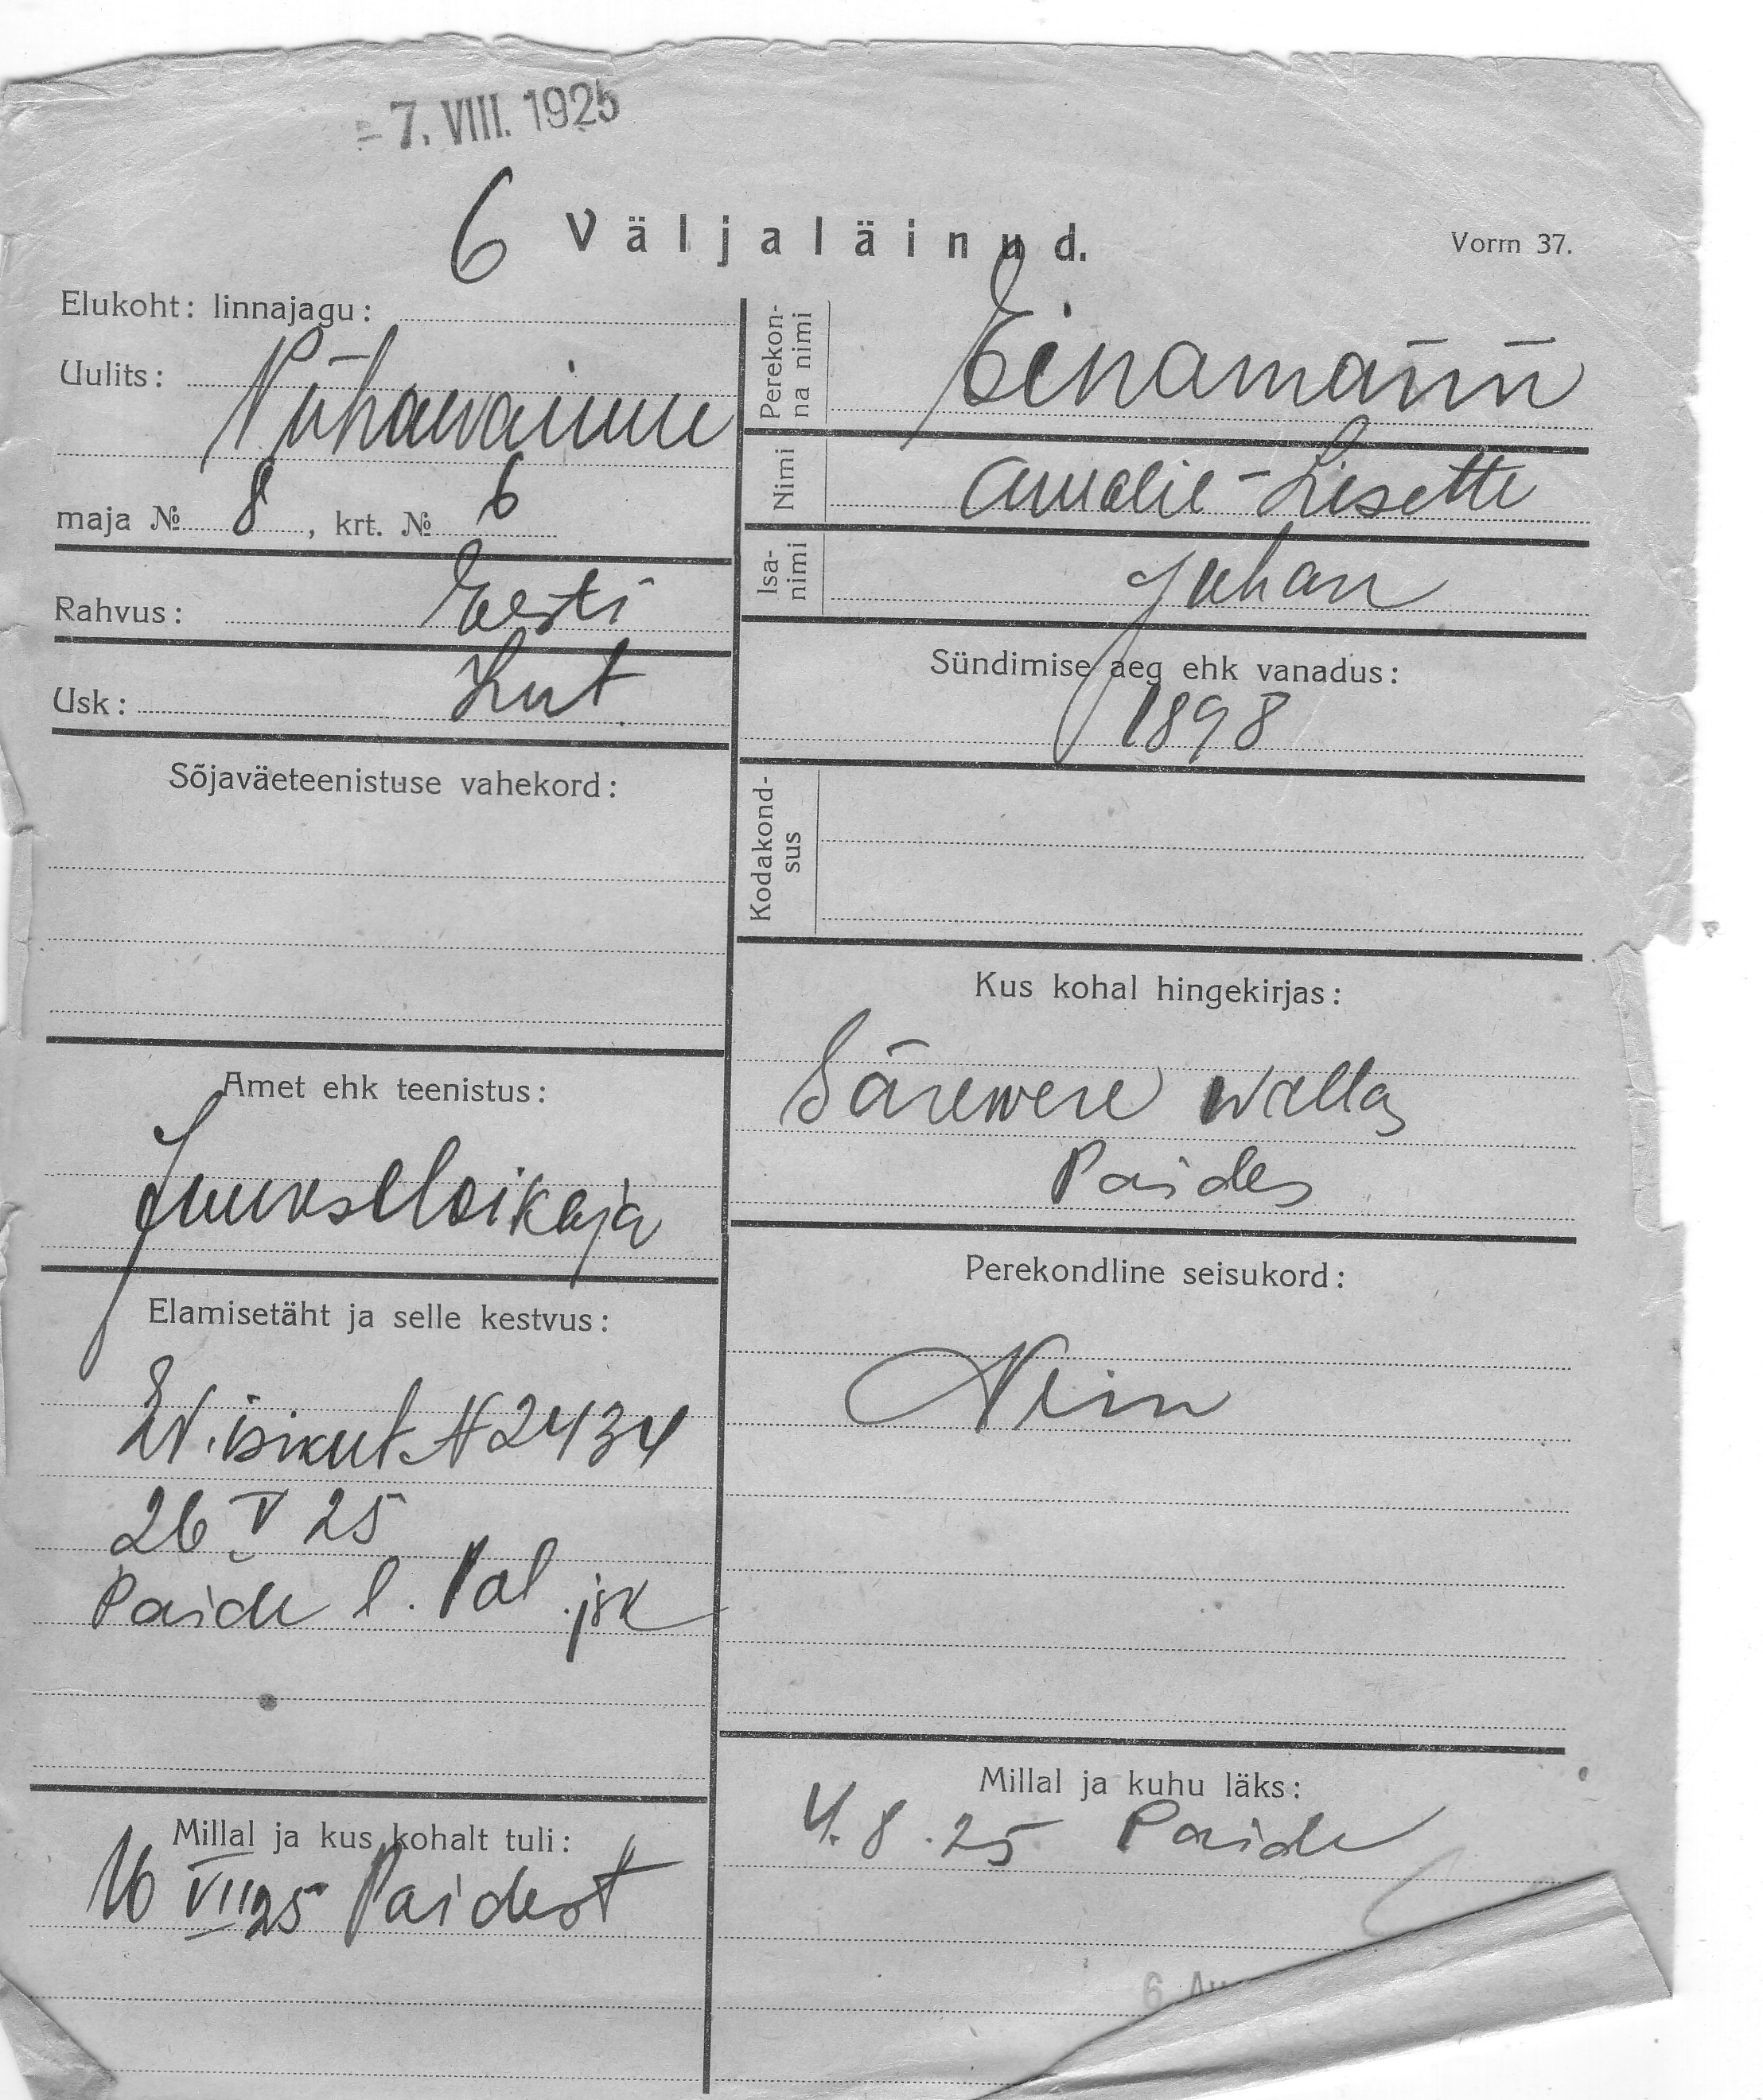 - 7. VIII. 1925
6 Väljaläinud.
Vorm 37.
Elukoht: linnajagu:
Uulits: Pühawaimu
maja № 8, krt. № 6
Rahvus: Eesti
Usk: Lut.
Sõjaväeteenistuse vahekord:
Amet ehk teenistus:
Juukselõikaja
Elamisetäht ja selle kestvus:
isikut. N 2434
26 V 25
Paide l. Pol. jsk
Millal ja kus kohalt tuli:
16 VII 25 Paidest
Perekon-
na nimi
Einamann
Nimi Amalie-Lisette
Isa-
nimi
Juhan
Sündimise aeg ehk vanadus:
1898
Kodakond-
sus
Kus kohal hingekirjas:
Särewere wallas
Paides
Perekondline seisukord:
Millal ja kuhu läks:
4.8.25 Paide
6 Au